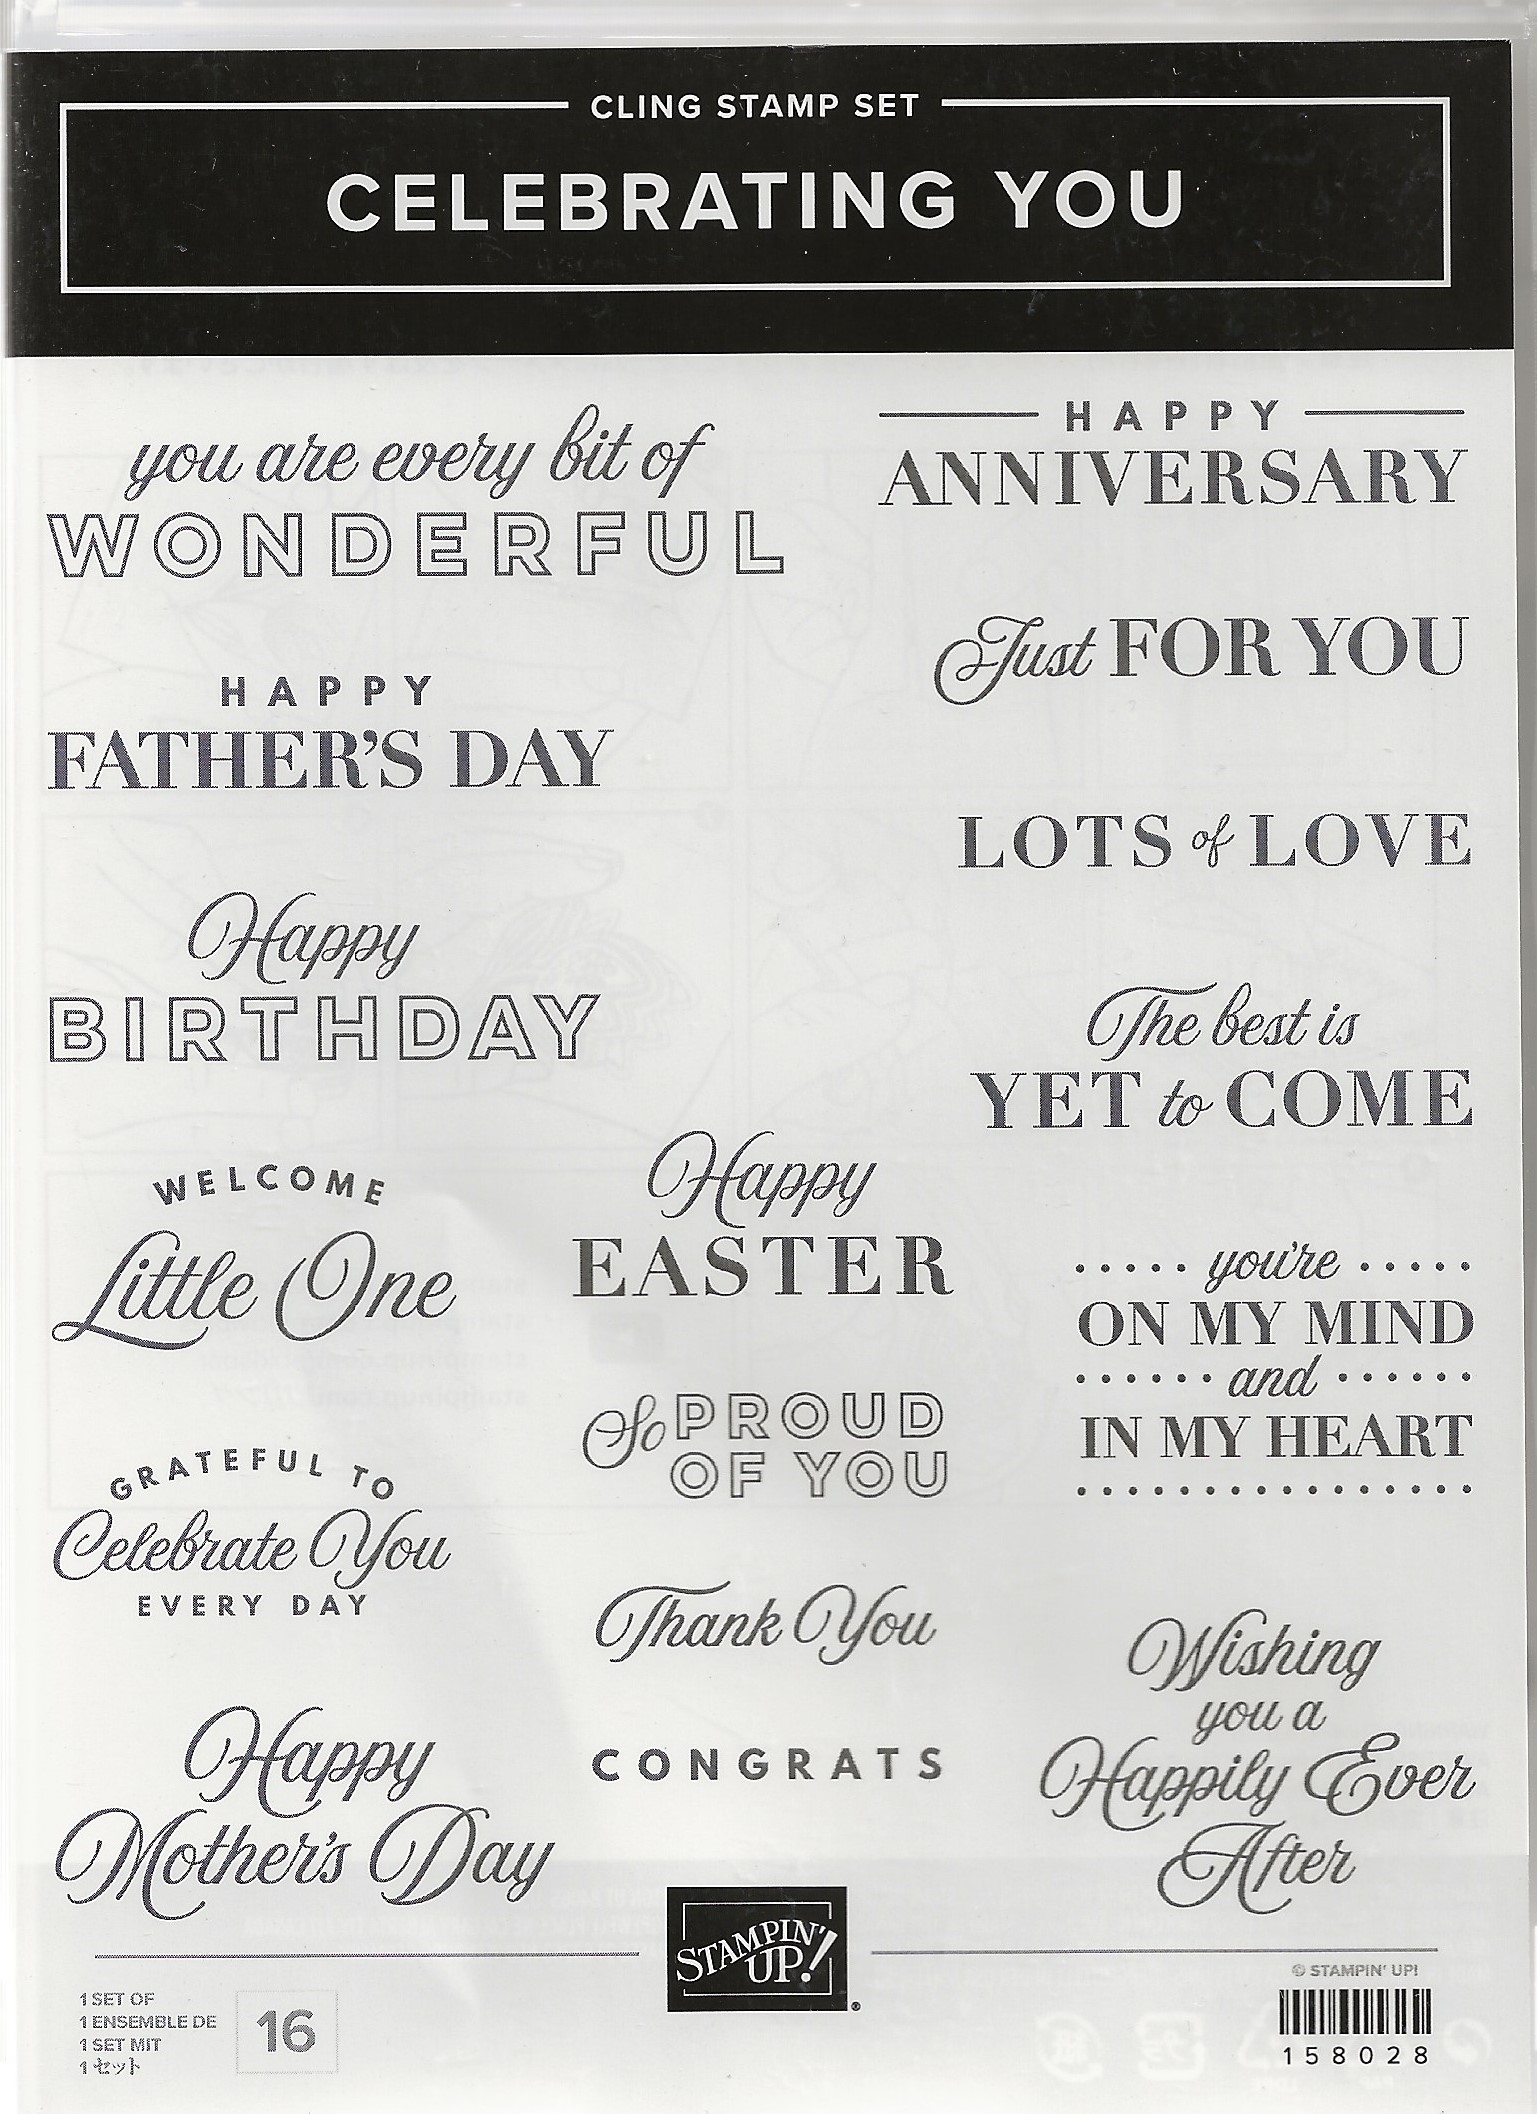 CLING STAMP SET
CELEBRATING YOU
you are every bit of
WONDERFUL
HAPPY
FATHER'S DAY
Happy
BIRTHDAY
WELCOME
Little One
GRATEFUL TO
Celebrate You
EVERY DAY
Happy
Mother's Day
Happy
EASTER
So PROUD
OF YOU
Thank You
CONGRATS
HAPPY
ANNIVERSARY
Just FOR YOU
LOTS of LOVE
The best is
YET to COME
you're
ON MY MIND
and
IN MY HEART
Wishing
you a
Happily Ever
After
STAMPIN'
UP!
®
1 SET OF
1 ENSEMBLE DE
1 SET MIT
1 セット
16
© STAMPIN' UP!
158028